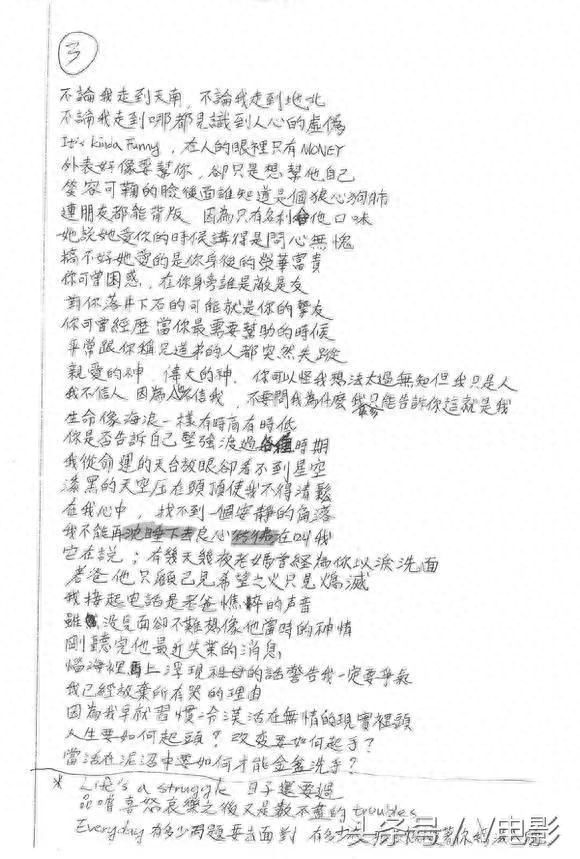 3
不論我走到天南，不論我走到地北
不論我走到哪都見識到人心的虛偽
It's kinda Funny，在人的眼裡只有MONEY
外表好像要幫你，卻只是想幫他自己
笑容可鞠的臉後面誰知道是個狼心狗肺
連朋友都能背叛 因為只有名利合他口味
她說她愛你的時候講得是問心無愧
搞不好她愛的是你身後的榮華富貴
你可曾困惑，在你身旁誰是敵是友
對你落井下石的可能就是你的摯友
你可曾經歷當你最需要幫助的時候
平常跟你稱兄道弟的人都突然失蹤
親愛的神 偉大的神，你可以怪我想法太過無知但我只是人
我不信人 因為人不信我，不要問我為什麼 我只能告訴你這就是我
生命像海浪一樣有時高有時低
你是否告訴自己堅強渡過各種時期
我從命運的天台放眼卻看不到星空
漆黑的天空压在頭頂使我不得清鬆
在我心中，找不到一個安靜的角落
我不能再沈睡下去良心彷彿在叫我
它在說；有幾天幾夜老媽曾經為你以淚洗面
老爸他只顧己見希望之火只見熄滅
我接起電話是老爸憔悴的声音
雖 沒見面卻不難想像他當時的神情
剛聽完他最近失業的消息
腦海裡馬上浮現祖母的話警告我一定要爭氣
我已經放棄所有哭的理由
因為我早就習慣一冷漠活在無情的現實裡頭
人生要如何起頭？改變要如何起手？
當活在泥沼中要如何才能金盆洗手？
* Life's a struggle 日子還要過
品嚐喜怒哀樂之後又是數不盡的troubles
Everyday 有多少問題要去面對 有多少
头条号 / V电影